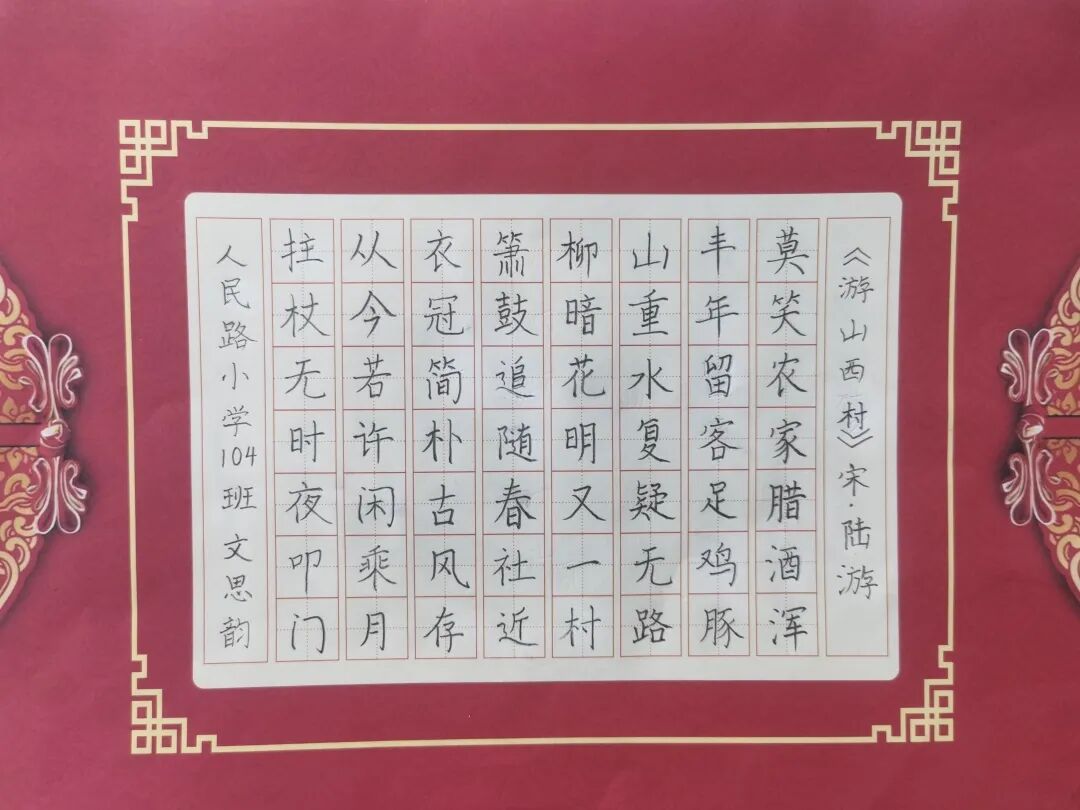 《游山西村》宋·陆游
莫笑农家腊酒浑
丰年留客足鸡豚
山重水复疑无路
柳暗花明又一村
箫鼓追随春社近
衣冠简朴古风存
从今若许闲乘月
拄杖无时夜叩门
人民路小学104班 文思韵